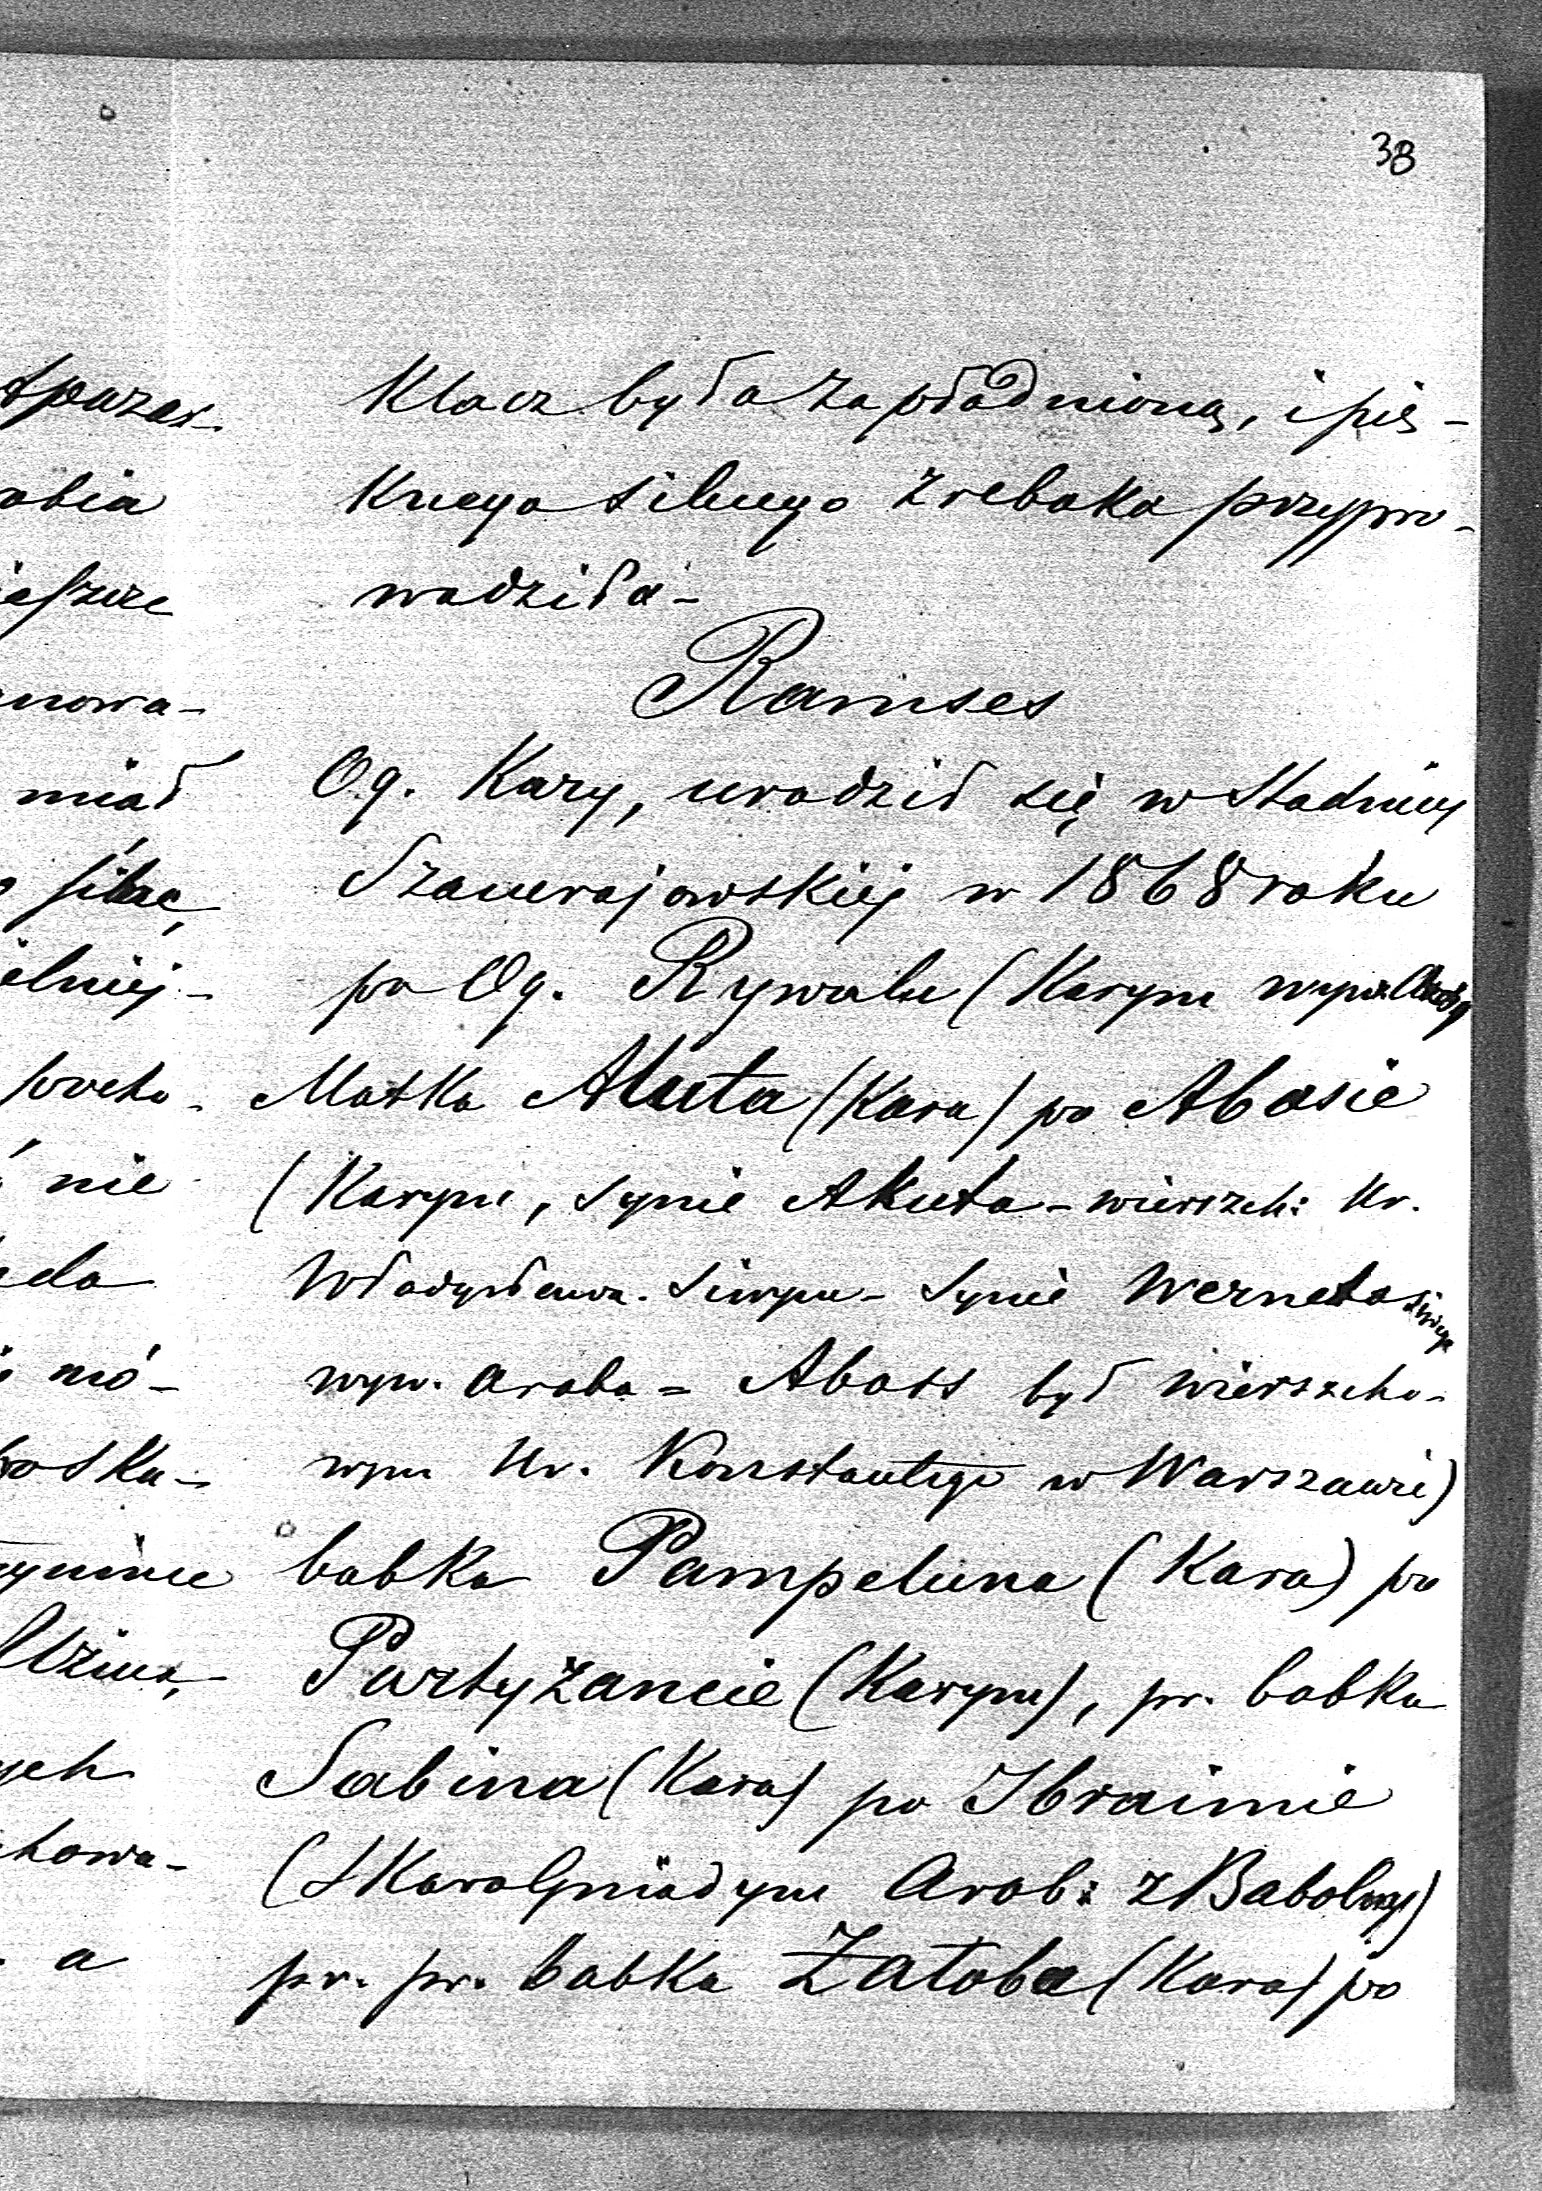 38
Klacz była zapłodnioną, i pię-
knego silnego źrebaka przypro-
wadziła-
Ramses
Og. Kary, urodził się w Stadniny
Szamrajowskiej w 1868 roku
po Og. Rywalu (Karym
Matka Akuta (Kara) po Abasie
(Karym, synie Akuta - wierzch: Hr.
Władysława. Siwym - synie Werneta siwego
wyw. araba = Abass był wierzcho-
wym Hr. Konstantego w Warszawie)
babka Pampeluna (Kara) po
Partyzancie (Karym), pr. babka
Sabina (Kara) po Ibraimie
(SkaroGniadym Arab: z Babolny)
pr. pr. babka Żałoba (Kara) po